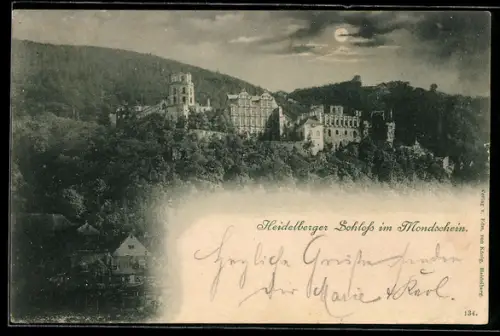 Heidelberger Schloß im Mondschein.
Herzliche Grüße senden
Dir Marie & Karl.
Verlag v. Edm. von König, Heidelberg.
134.